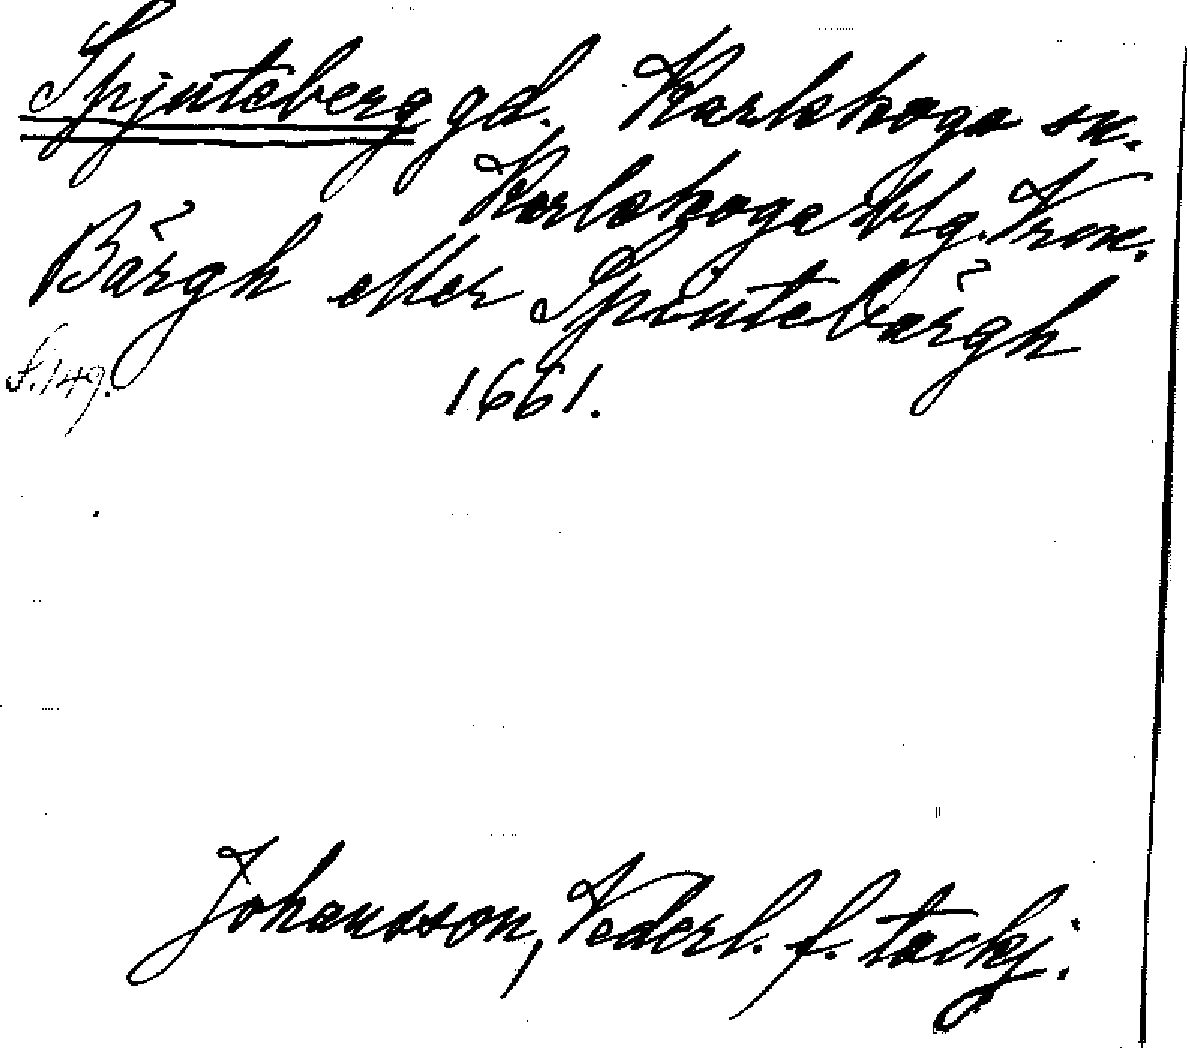 Spjuteberg gd. Karlskoga sn.
Karlskoga blg. Vrml.
Bärgh eller Spiutebärgh
S. 149. 1661.
Johansson, Vederl. f. tackj.